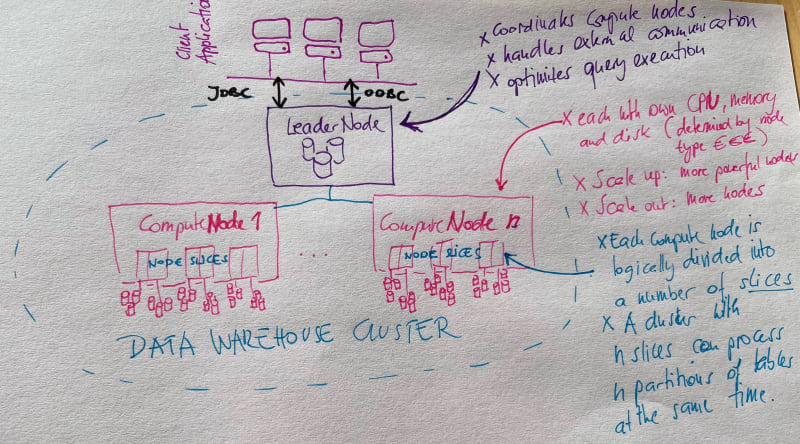 Client
Applications
JDBC
ODBC
Leader Node
x Coordinates Compute nodes
x handles external communication
x optimizes query execution
x each with own CPU, memory
and disk (determined by node
type €€€)
x Scale up: more powerful nodes
x Scale out: more nodes
Compute Node 1
NODE SLICES
...
Compute Node n
NODE SLICES
x Each compute node is
logically divided into
a number of slices
x A cluster with
n slices can process
n partitions of tables
at the same time.
DATA WAREHOUSE CLUSTER